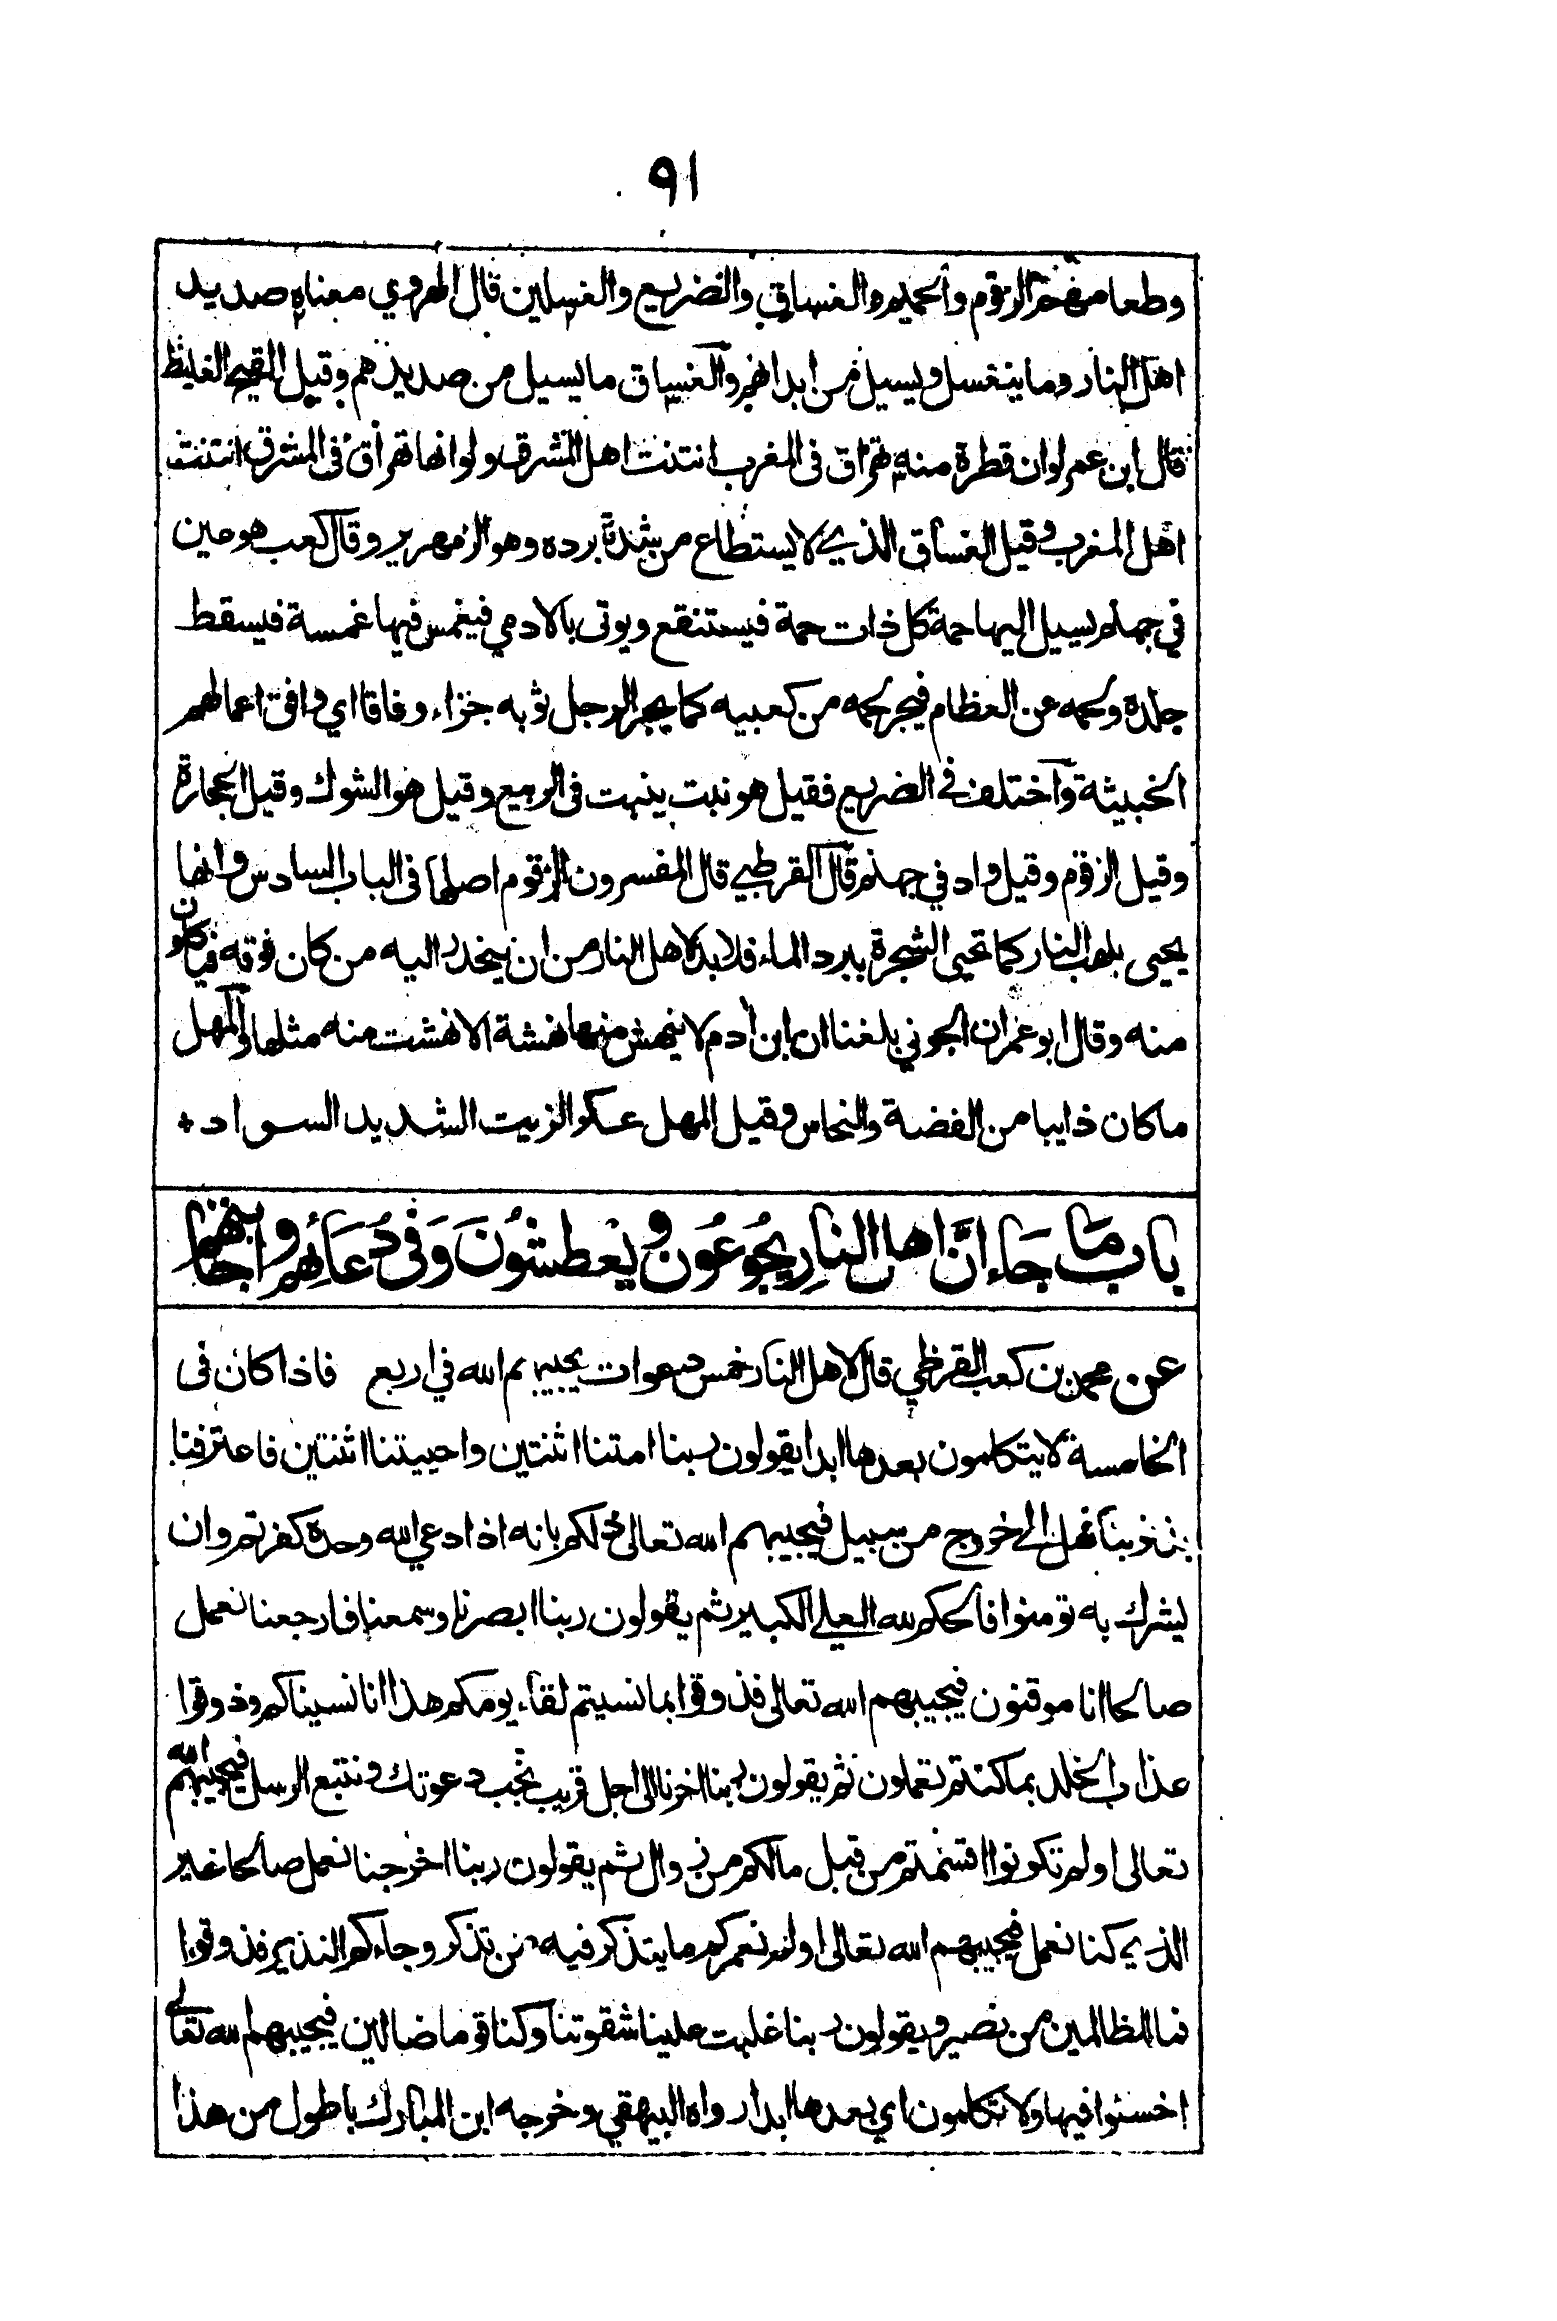 ٩١
وطعامهم الزقوم والحميم والغساق والضريع والغسلين قال الهروي معناه صديد
اهل النار وما ينغسل ويسيل من ابدانهم والغساق ما يسيل من صديدهم وقيل القيح الغليظ
قال ابن عمر لو ان قطرة منه تهراق في المغرب انتنت اهل المشرق ولو انها تهراق في المشرق انتنت
اهل المغرب وقيل الغساق الذي لا يستطاع من شدة برده وهو الزمهرير وقال كعب هو عين
في جهنم يسيل اليها حمة كل ذات حمة فيستنقع ويوتى بالادمي فيغمس فيها غمسة فيسقط
جلده ولحمه عن العظام فيجر لحمه من كعبيه كما يجر الرجل ثوبه جزاء وفاقا اي وافق اعمالهم
الخبيثة واختلف في الضريع فقيل هو نبت ينبت في الربيع وقيل هو الشوك وقيل الحجارة
وقيل الزقوم وقيل واد في جهنم قال القرطبي قال المفسرون الزقوم اصلها في الباب السادس وانها
يحيى بلهب النار كما تحيى الشجرة ببرد الماء فلا بد لاهل النار من ان ينحدر اليه من كان فوقه فياكلون
منه وقال ابو عمران الجوني بلغنا ان ابن آدم لا ينهش منها نهشة الا نهشت منه مثلها والمهل
ما كان ذايبا من الفضة والنحاس وقيل المهل عكر الزيت الشديد السواد
باب مَا جَاء انَّ اهل النارِ يَجُوعُون ويعْطشُونَ وَفي دُعَائِهِم واجابتهم
عن محمد بن كعب القرظي قال لاهل النار خمس دعوات يجيبهم الله في اربع فاذا كان في
الخامسة لا يتكلمون بعدها ابدا يقولون ربنا امتنا اثنتين واحييتنا اثنتين فاعترفنا
بذنوبنا فهل الى خروج من سبيل فيجيبهم الله تعالى ذلكم بانه اذا دعي الله وحده كفرتم وان
يشرك به تومنوا فالحكم لله العلي الكبير ثم يقولون ربنا ابصرنا وسمعنا فارجعنا نعمل
صالحا انا موقنون فيجيبهم الله تعالى فذوقوا بما نسيتم لقاء يومكم هذا انا نسيناكم وذوقوا
عذاب الخلد بما كنتم تعملون ثم يقولون ربنا اخرنا الى اجل قريب نجب دعوتك ونتبع الرسل فيجيبهم الله
تعالى اولم تكونوا اقسمتم من قبل مالكم من زوال ثم يقولون ربنا اخرجنا نعمل صالحا غير
الذي كنا نعمل فيجيبهم الله تعالى اولم نعمركم ما يتذكر فيه من تذكر وجاءكم النذير فذوقوا
فما للظالمين من نصير ويقولون ربنا غلبت علينا شقوتنا وكنا قوما ضالين فيجيبهم الله تعالى
اخسئوا فيها ولا تتكلمون اي بعدها ابدا رواه البيهقي وخرجه ابن المبارك باطول من هذا